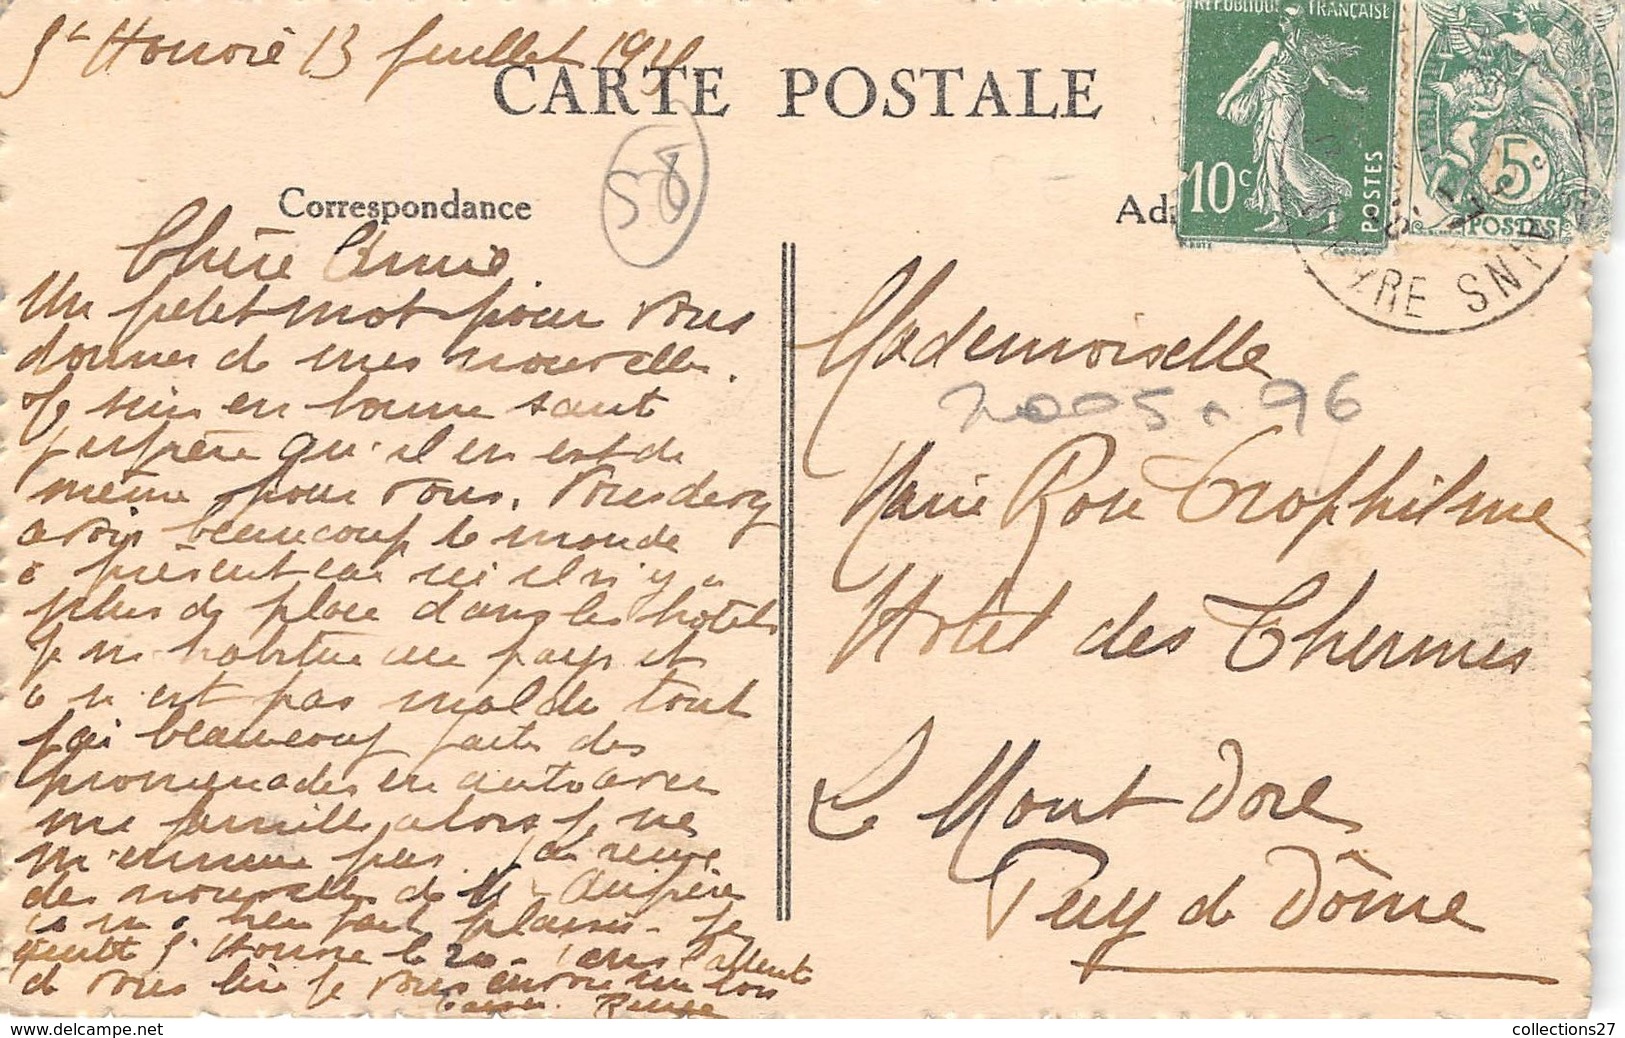 St Honoré 13 juillet 19
CARTE POSTALE
RÉPUBLIQUE FRANÇAISE
10c
POSTES
5c
POSTES
58
Correspondance
Ad
Chère Annie
Un petit mot pour vous
donner de mes nouvelles.
Je suis en bonne santé
j'espère qu'il en est de
même pour vous. Vous devez
avoir beaucoup de monde
à présent car ici il n'y a
plus de place dans les hotels
Je m'habitue au pays et
ce n'est pas mal du tout
j'ai beaucoup faites des
promenades en auto avec
ma famille alors je ne
m'ennuie pas. J'ai reçue
des nouvelles de M
ça m'a bien fait plaisir. Je
quitte St Honoré le 20 - Dans l'attente
de vous lire je vous envoie un bon
baiser.
Mademoiselle
2005 96
Marie Rose Trophilme
Hôtel des Thermes
Le Mont Dore
Puy de Dôme
collections27